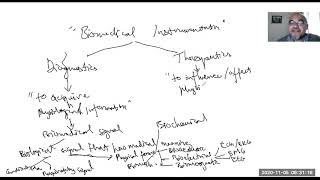 "Biomedical Instrumentation"
Diagnostics
Therapeutics
"to acquire
Physiological information"
"to influence/affect
Biomedical signal
Biochemical
Biological signal that has medical meaning
Physical form
Bioelectric
ECG/EKG
EMG
EEG
Respiratory Signal
2020-11-05 08:31:16